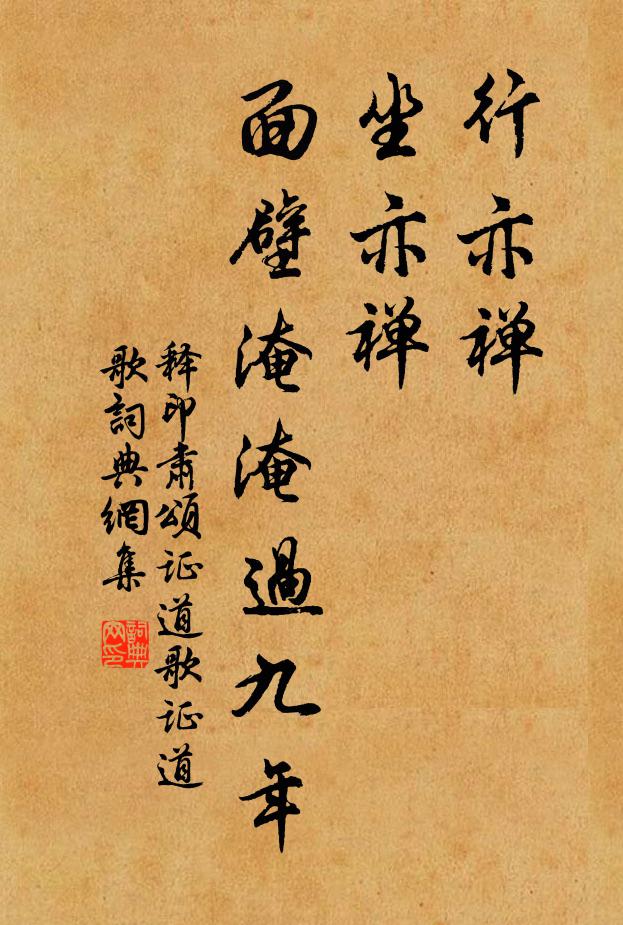 行亦禅
坐亦禅
面壁淹淹過九年
释印肃頌证道歌证道
歌詞典網集
詞典
网印